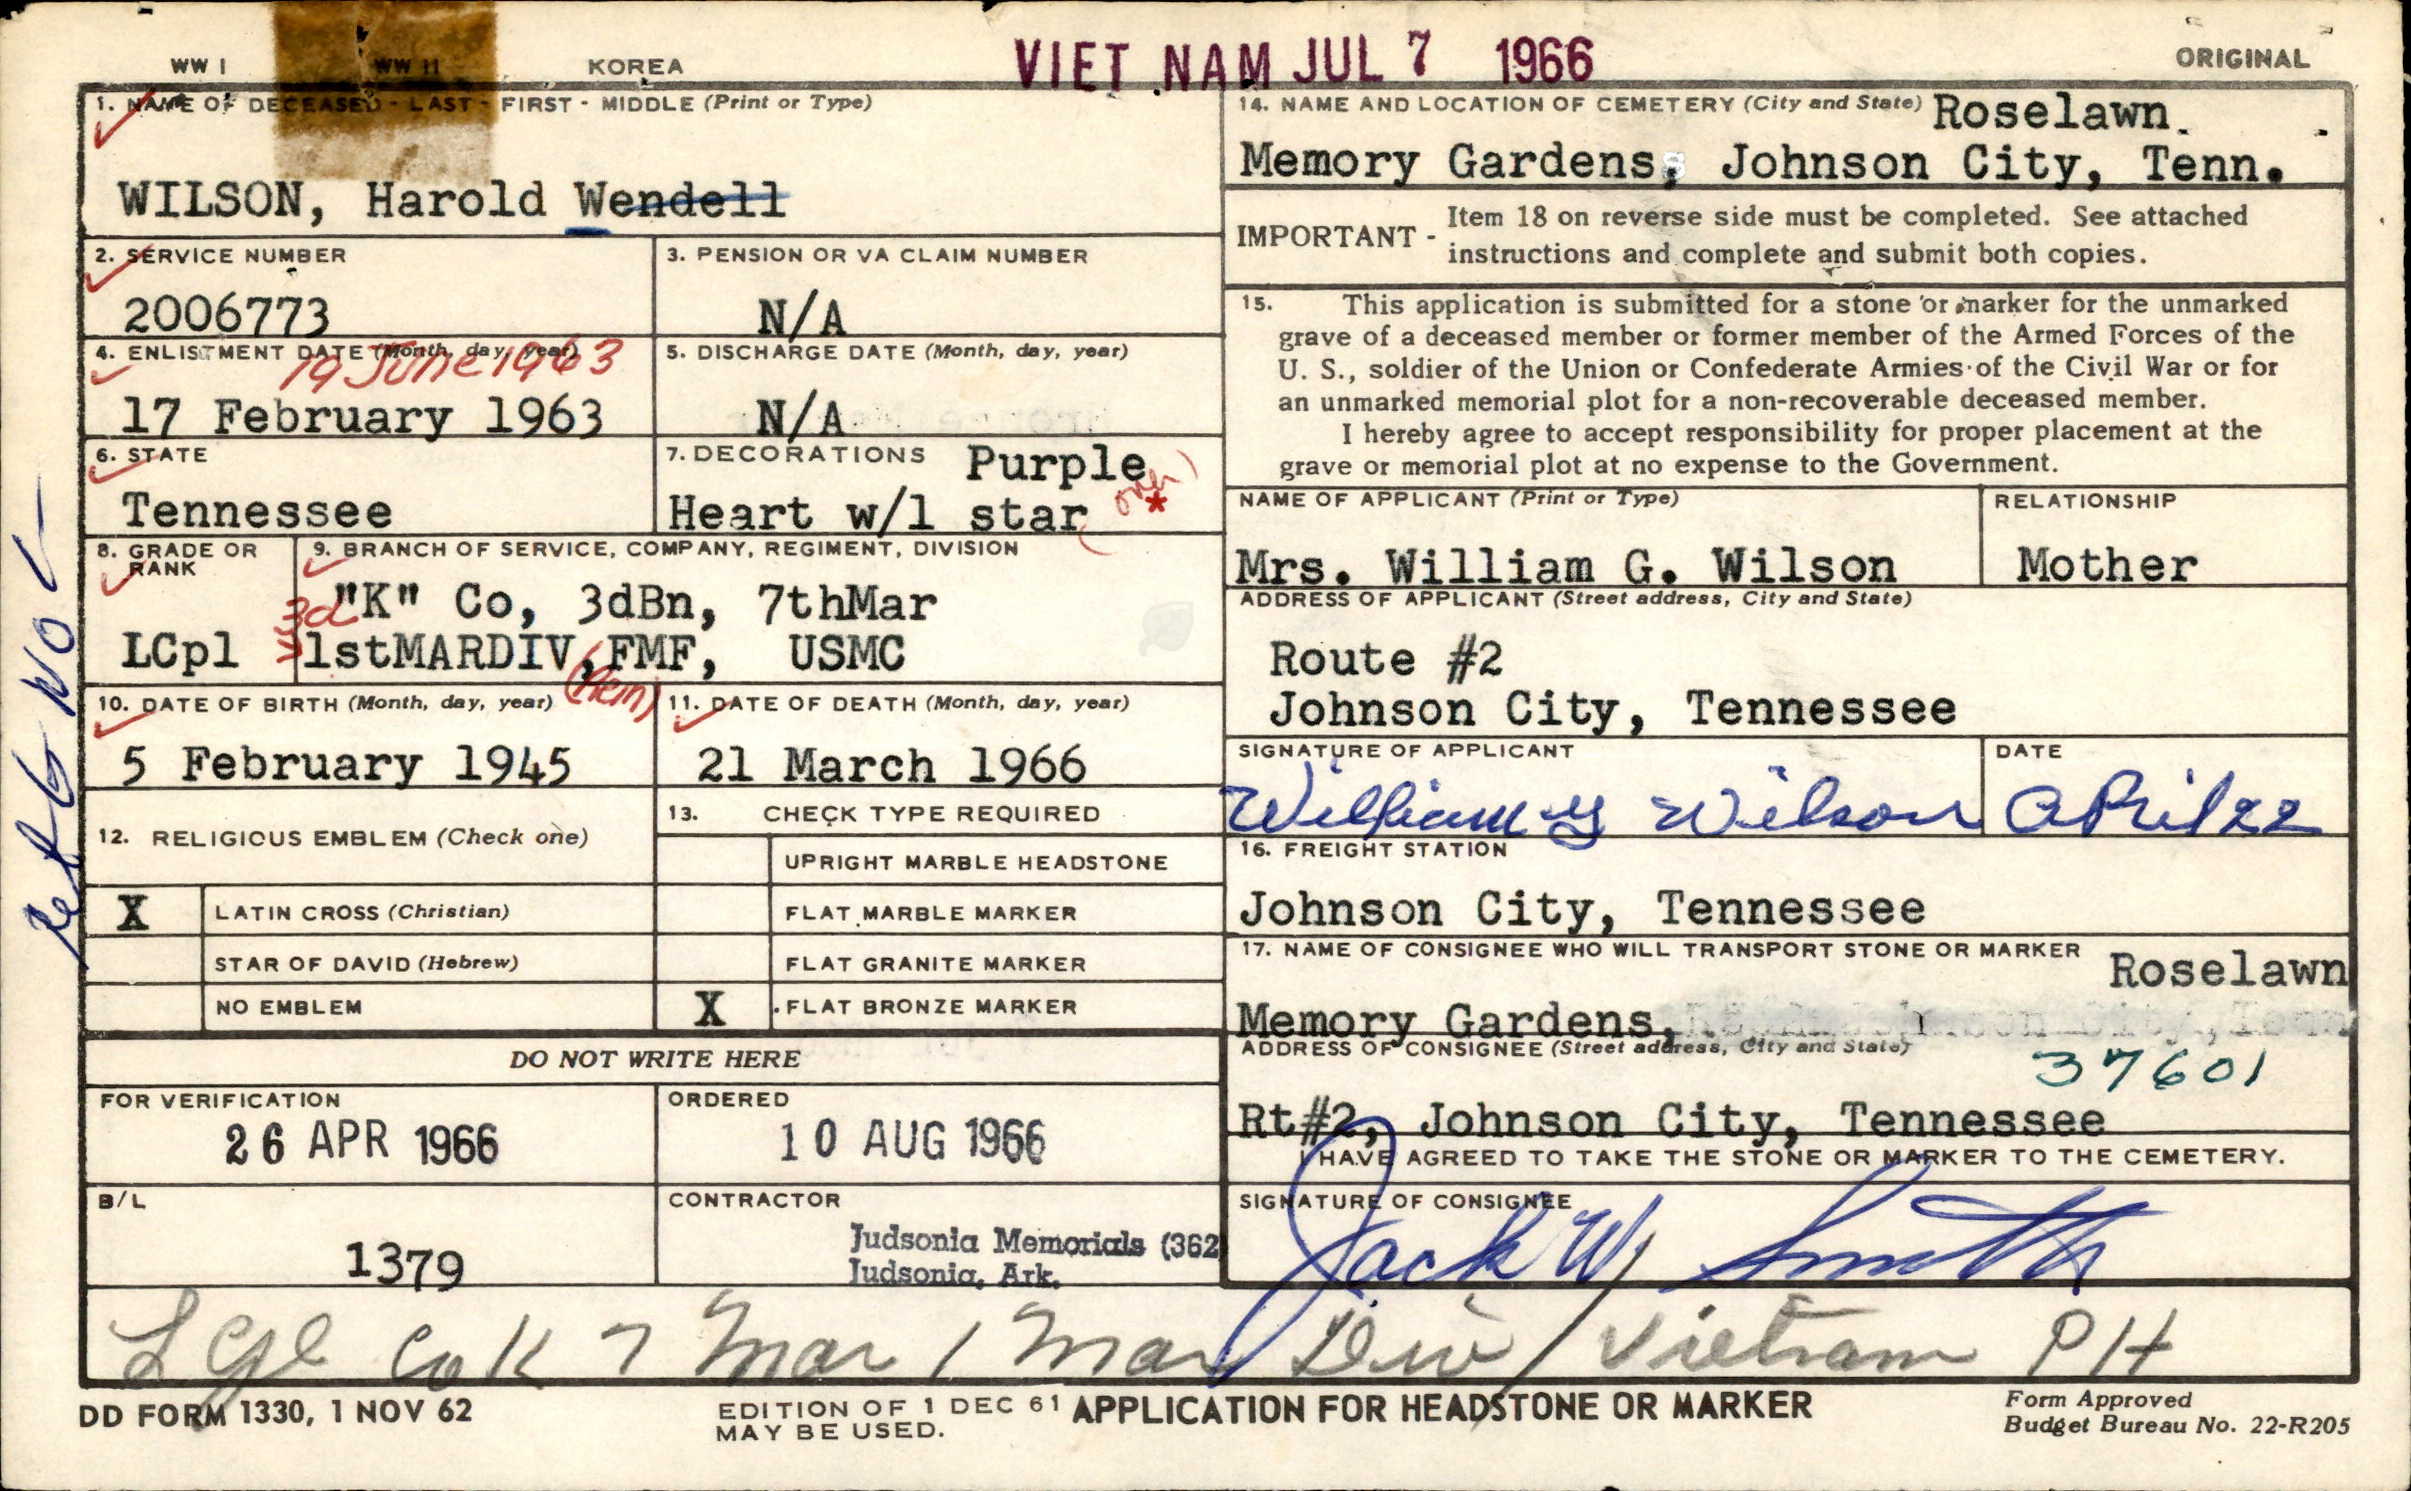 WW I WW II KOREA VIET NAM JUL 7 1966 ORIGINAL
1. NAME OF DECEASED - LAST - FIRST - MIDDLE (Print or Type)
WILSON, Harold Wendell
2. SERVICE NUMBER
2006773
3. PENSION OR VA CLAIM NUMBER
N/A
4. ENLISTMENT DATE (Month, day, year)
19 June 1963
17 February 1963
5. DISCHARGE DATE (Month, day, year)
N/A
6. STATE
Tennessee
7. DECORATIONS Purple
Heart w/1 star (over) *
8. GRADE OR
RANK
LCpl
9. BRANCH OF SERVICE, COMPANY, REGIMENT, DIVISION
"K" Co, 3dBn, 7thMar
3d
1stMARDIV, FMF, USMC
(Rein)
10. DATE OF BIRTH (Month, day, year)
5 February 1945
11. DATE OF DEATH (Month, day, year)
21 March 1966
12. RELIGIOUS EMBLEM (Check one)
X LATIN CROSS (Christian)
STAR OF DAVID (Hebrew)
NO EMBLEM
13. CHECK TYPE REQUIRED
UPRIGHT MARBLE HEADSTONE
FLAT MARBLE MARKER
FLAT GRANITE MARKER
X FLAT BRONZE MARKER
DO NOT WRITE HERE
FOR VERIFICATION
26 APR 1966
ORDERED
10 AUG 1966
B/L
1379
CONTRACTOR
Judsonia Memorials (362
Judsonia, Ark.
14. NAME AND LOCATION OF CEMETERY (City and State) Roselawn
Memory Gardens, Johnson City, Tenn.
IMPORTANT - Item 18 on reverse side must be completed. See attached
instructions and complete and submit both copies.
15. This application is submitted for a stone or marker for the unmarked
grave of a deceased member or former member of the Armed Forces of the
U. S., soldier of the Union or Confederate Armies of the Civil War or for
an unmarked memorial plot for a non-recoverable deceased member.
I hereby agree to accept responsibility for proper placement at the
grave or memorial plot at no expense to the Government.
NAME OF APPLICANT (Print or Type)
Mrs. William G. Wilson
RELATIONSHIP
Mother
ADDRESS OF APPLICANT (Street address, City and State)
Route #2
Johnson City, Tennessee
SIGNATURE OF APPLICANT
William G Wilson
DATE
April 22
16. FREIGHT STATION
Johnson City, Tennessee
17. NAME OF CONSIGNEE WHO WILL TRANSPORT STONE OR MARKER
Roselawn
Memory Gardens,
ADDRESS OF CONSIGNEE (Street address, City and State)
37601
Rt#2, Johnson City, Tennessee
I HAVE AGREED TO TAKE THE STONE OR MARKER TO THE CEMETERY.
SIGNATURE OF CONSIGNEE
Jack W Smith
LCpl Co K 7 Mar 1 Mar Div / Vietnam PH
DD FORM 1330, 1 NOV 62
EDITION OF 1 DEC 61
MAY BE USED.
APPLICATION FOR HEADSTONE OR MARKER
Form Approved
Budget Bureau No. 22-R205